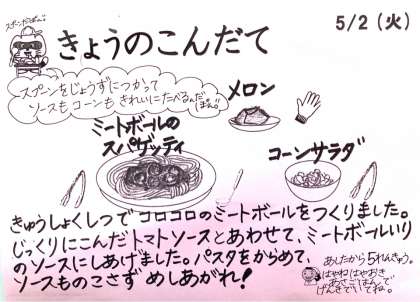 スプーンだぱん。
きょうのこんだて
5/2 (火)
スプーンをじょうずにつかって
ソースも コーンも きれいにたべるんだぱん。
メロン
ミートボールの
スパゲッティ
コーンサラダ
きゅうしょくしつで コロコロのミートボールをつくりました。
じっくりにこんだ トマトソースと あわせて、ミートボールいり
のソースにしあげました。パスタをからめて、
ソースものこさず めしあがれ!
あしたから5れんきゅう。
はやねはやおき
あさごはんで
げんきでいてね。